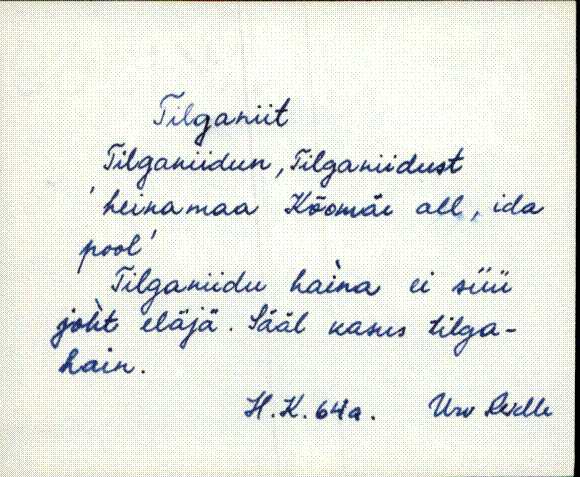 Tilganiit
Tilganiidun, Tilganiidust
'heinamaa Kõomäe all, ida
pool'
Tilganiidu haìna ei süü
joht eläjä. Sääl kasus tilga-
hain.
H. K. 64 a. Urv